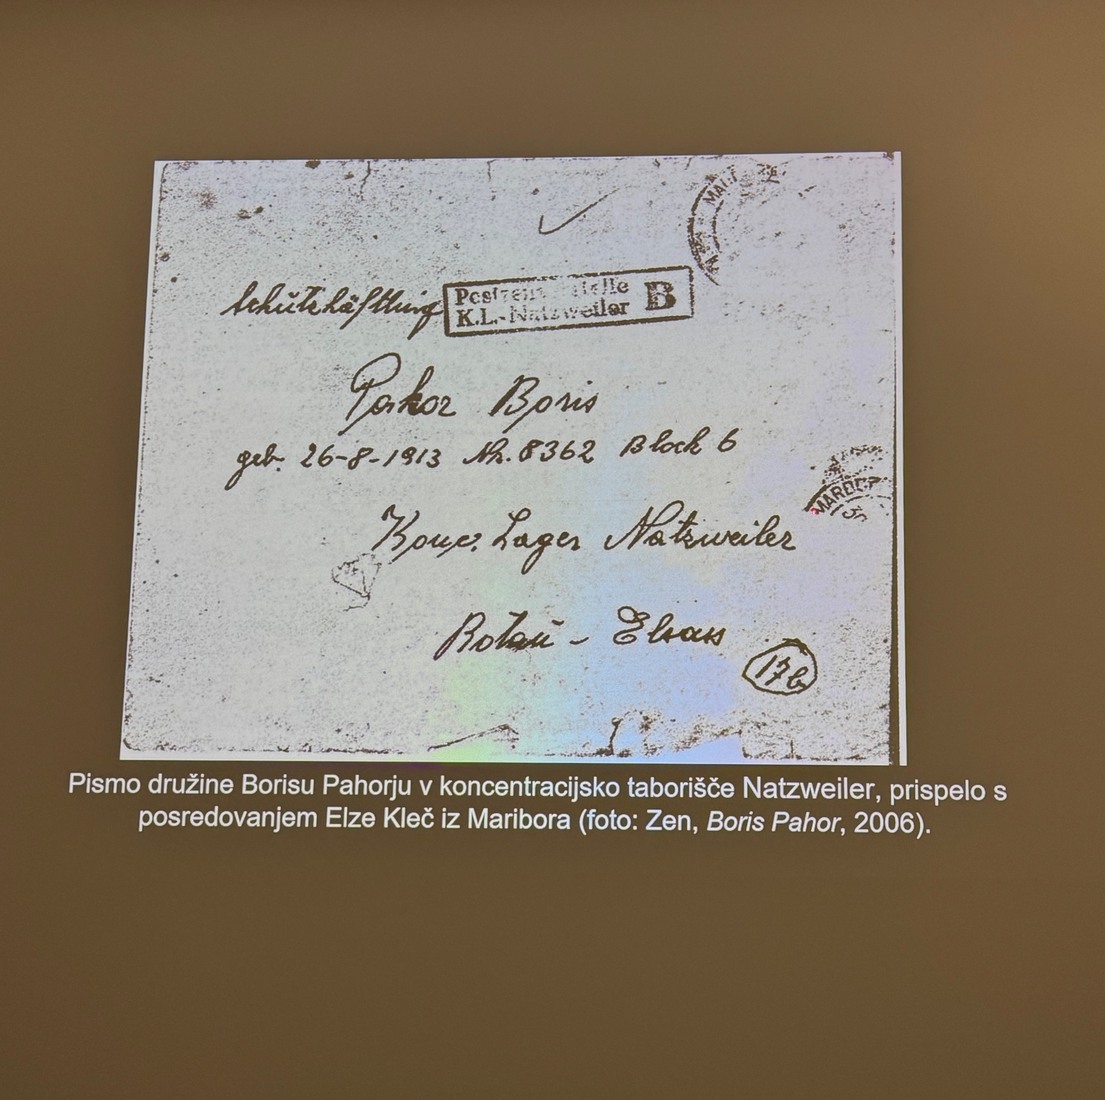 Schützhäftling
Postzens stelle B
K.L.-Natzweiler
Pahor Boris
geb. 26-8-1913 Nr. 8362 Block 6
Konc. Lager Natzweiler
Rotau - Elsass
17b
Pismo družine Borisu Pahorju v koncentracijsko taborišče Natzweiler, prispelo s
posredovanjem Elze Kleč iz Maribora (foto: Zen, Boris Pahor, 2006).